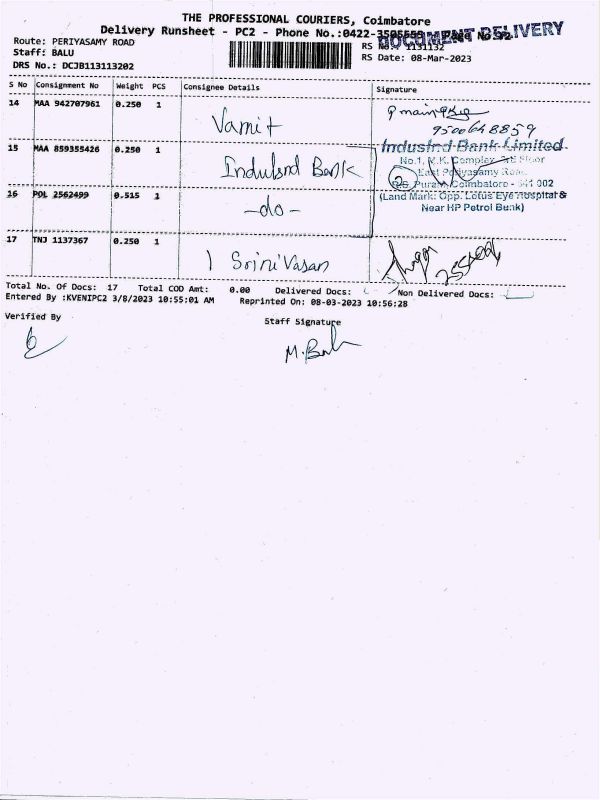 THE PROFESSIONAL COURIERS, Coimbatore
Delivery Runsheet - PC2 - Phone No.:0422-
DOCUMENT DELIVERY
Route: PERIYASAMY ROAD
RS No.: 1131132
Staff: BALU
RS Date: 08-Mar-2023
DRS No.: DCJB113113202
S No Consignment No Weight PCS Consignee Details Signature
14 MAA 942707961 0.250 1 Vamit
9500648859
15 MAA 859355426 0.250 1 Indusind Bank
IndusInd Bank Limited
No.1, V.K. Complex, 3rd Floor
East Periyasamy Road,
R.S. Puram, Coimbatore - 641 002
(Land Mark: Opp. Lotus Eye Hospital &
Near HP Petrol Bunk)
16 POL 2562499 0.515 1 -do-
17 TNJ 1137367 0.250 1 Srinivasan
Total No. Of Docs: 17 Total COD Amt: 0.00 Delivered Docs: Non Delivered Docs:
Entered By :KVENIPC2 3/8/2023 10:55:01 AM Reprinted On: 08-03-2023 10:56:28
Verified By
Staff Signature